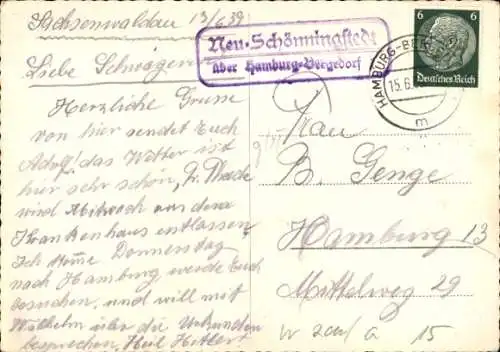 Sachsenwaldau 13/6 39
Liebe Schwägerin
Herzliche Grüsse
von hier sendet Euch
Adolf! das Wetter ist
hier sehr schön, Fr.
wird Mittwoch aus dem
Krankenhaus entlassen
Ich komme Donnerstag
nach Hamburg werde Euch
besuchen, und will mit
Wilhelm über die Urkunden
besprechen, Heil Hitler!
Neu-Schönningstedt
über Hamburg-Bergedorf
HAMBURG-BE
15.6.
m
6 6
Deutsches Reich
Frau
B. Genge
Hamburg 13
Mittelweg 29
15